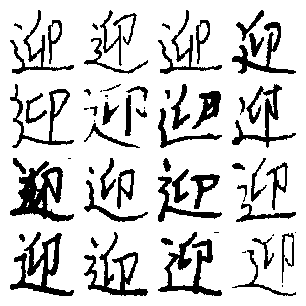 迎迎迎迎
迎迎迎迎
迎迎迎迎
迎迎迎迎